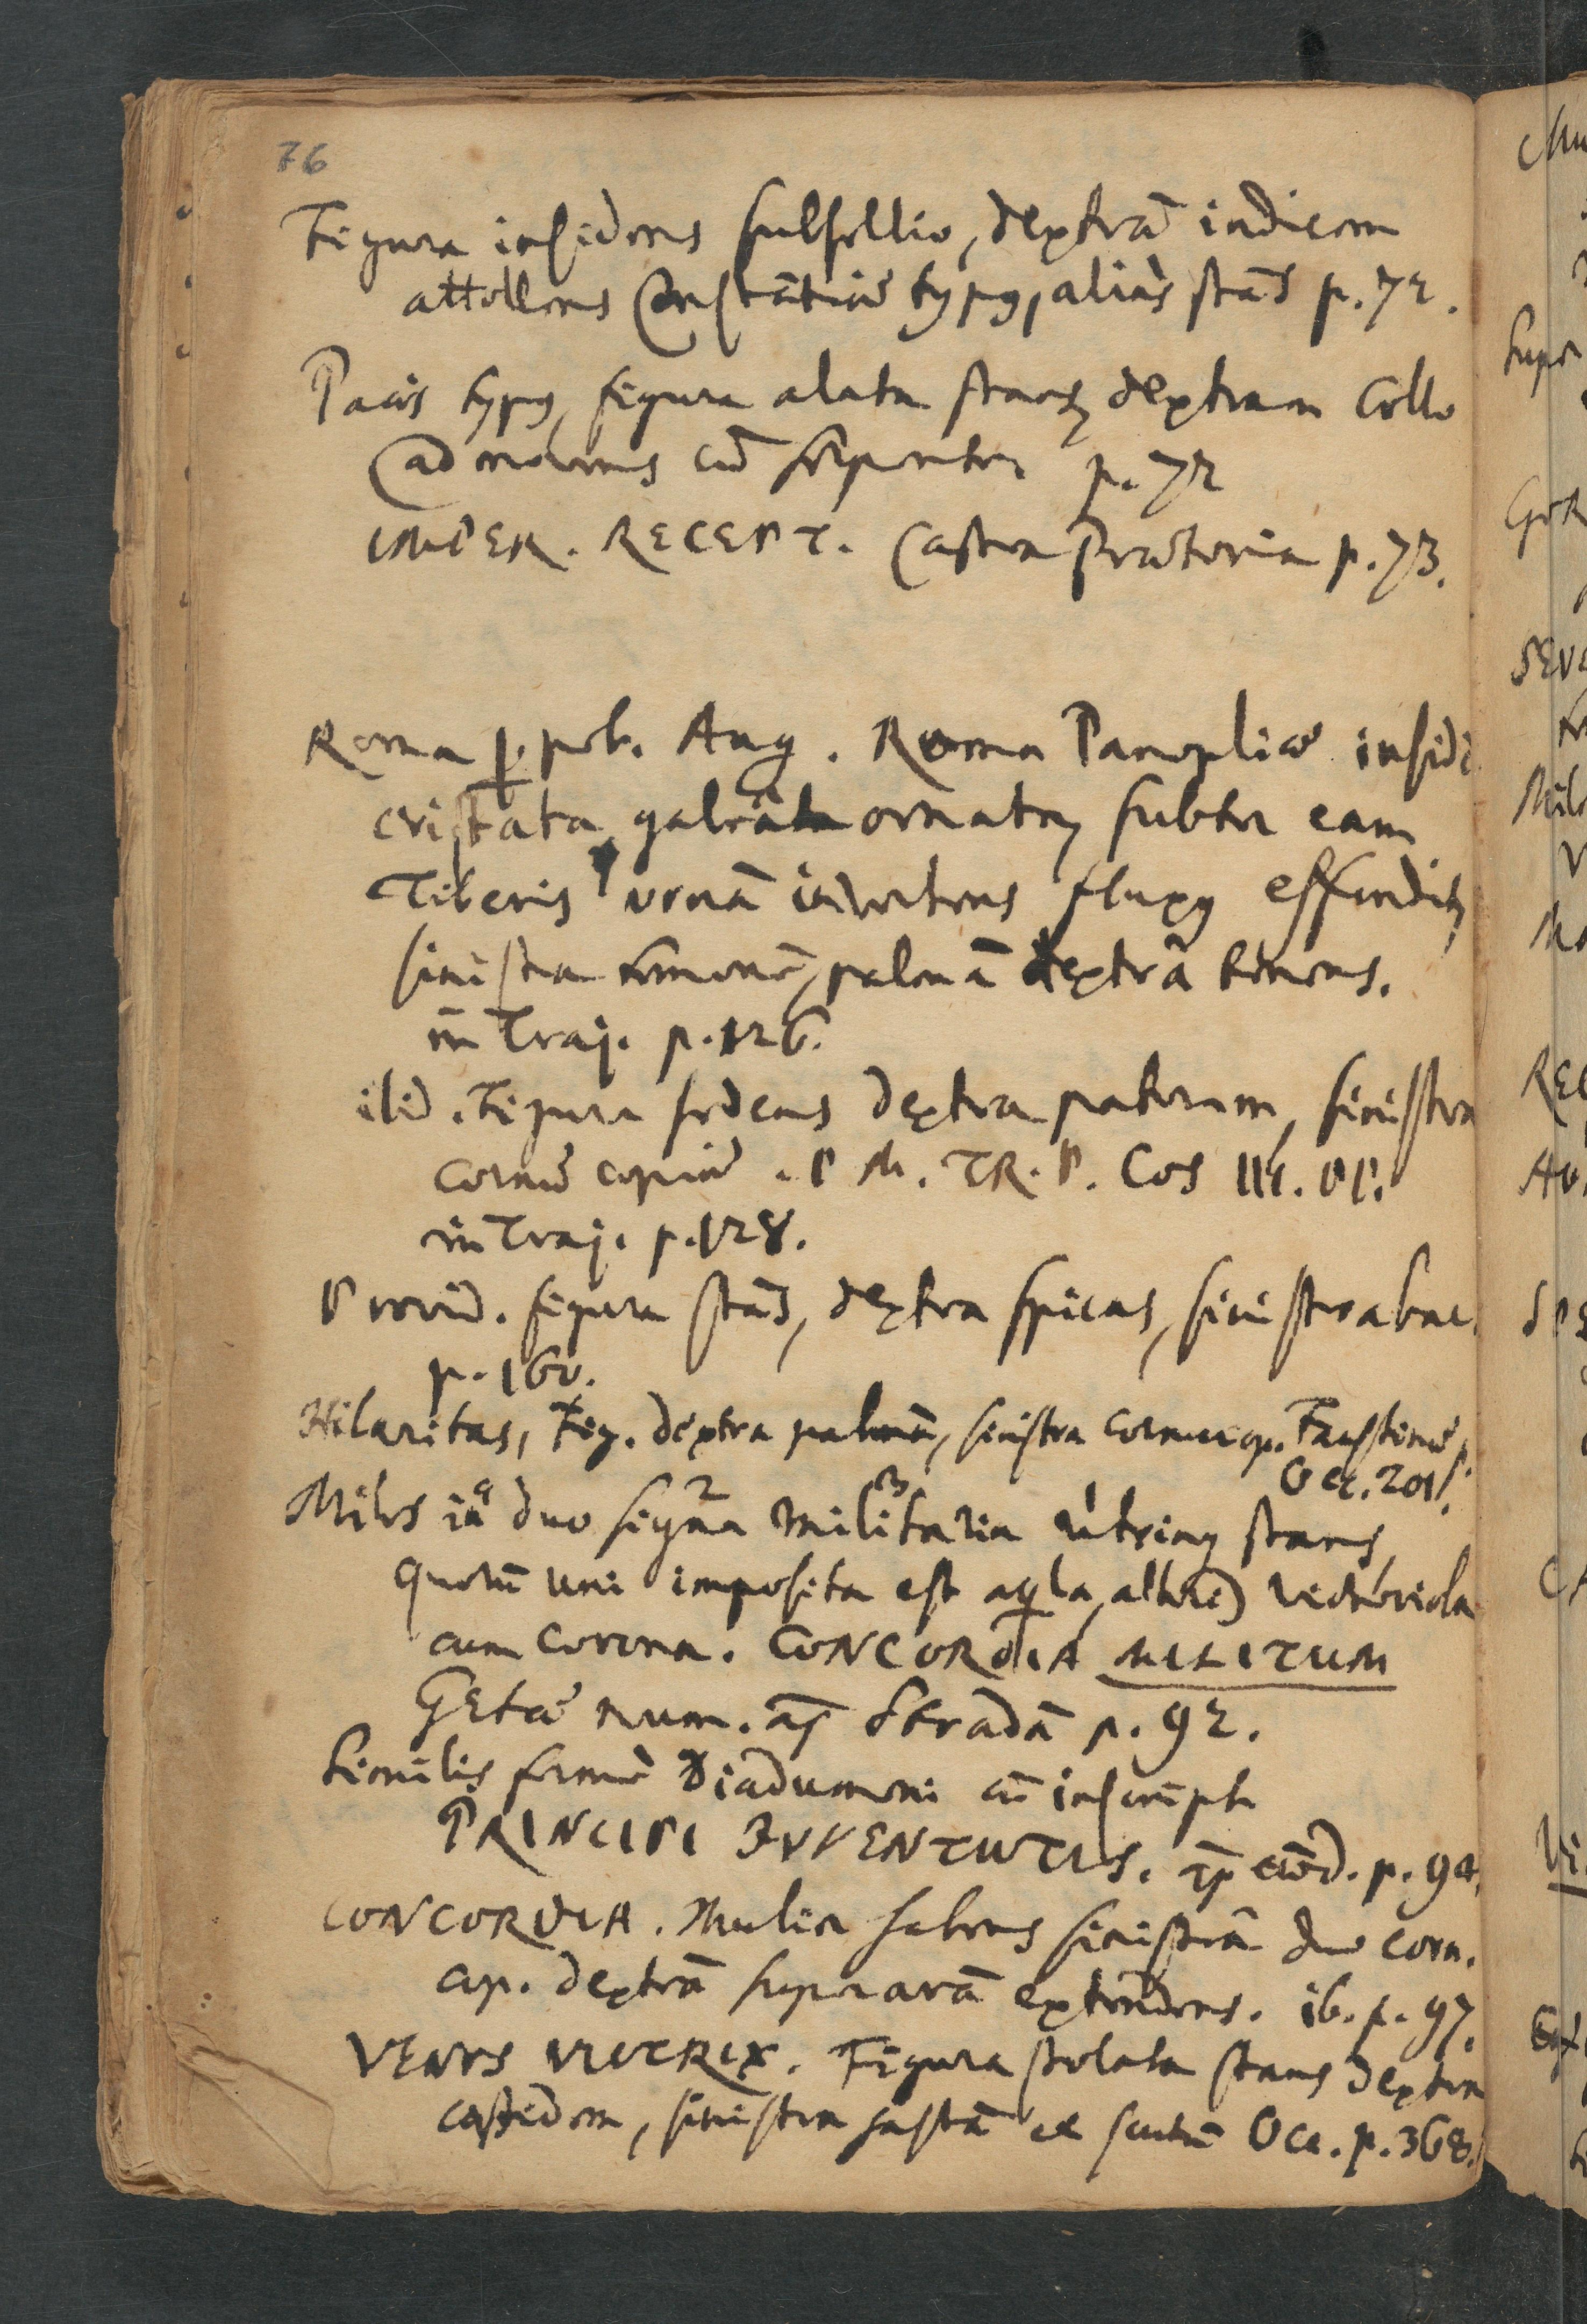 76
Figura insidens subsellio, dextrâ indicem
attollens Constātiæ typꝰ, aliàs stās p. 72.
Pacis typꝰ, figura alata stans, dextram collo
admovens cū serpente p. 72
IMPER. RECEPT. Castra Prætoria p. 73.
Roma p. pet. Aug. Roma Panopliæ insid
cristata galeâ ornata, subter eam
Tiberis urnā invertens fluxꝰ effundit,
sinistra temonē, palmā dextrâ tenens.
in Traj. p. 126.
ibid. Figura sedens dextra pateram, sinistra
cornu copiæ. P M. TR. P. Cos III. PP.
in Traj. p. 128.
Provid. figura stās, dextra spicas, sinistra bac.
p. 160.
Hilaritas, Fig. dextra palmā, sinistra cornucop. Faustinæ,
Occ. 201.
Miles iā duo signa militaria utrinq stans,
quorū uni imposita est aqla, alteri victoriola
cum corona. CONCORDIA MILITUM
Getæ num. ap Stradā p. 92.
Similis fermè Diadumeni cū inscript
PRINCIPI JVVENTUTIS. ap eūd. p. 94.
CONCORDIA. Mulier habens sinistrâ duo corn.
cop. dextrā super arā extendens. ib. p. 97.
VENVS VICTRIX. Figura stolata stans dextra
cassidem, sinistra hastā et scutū Occ. p. 368.